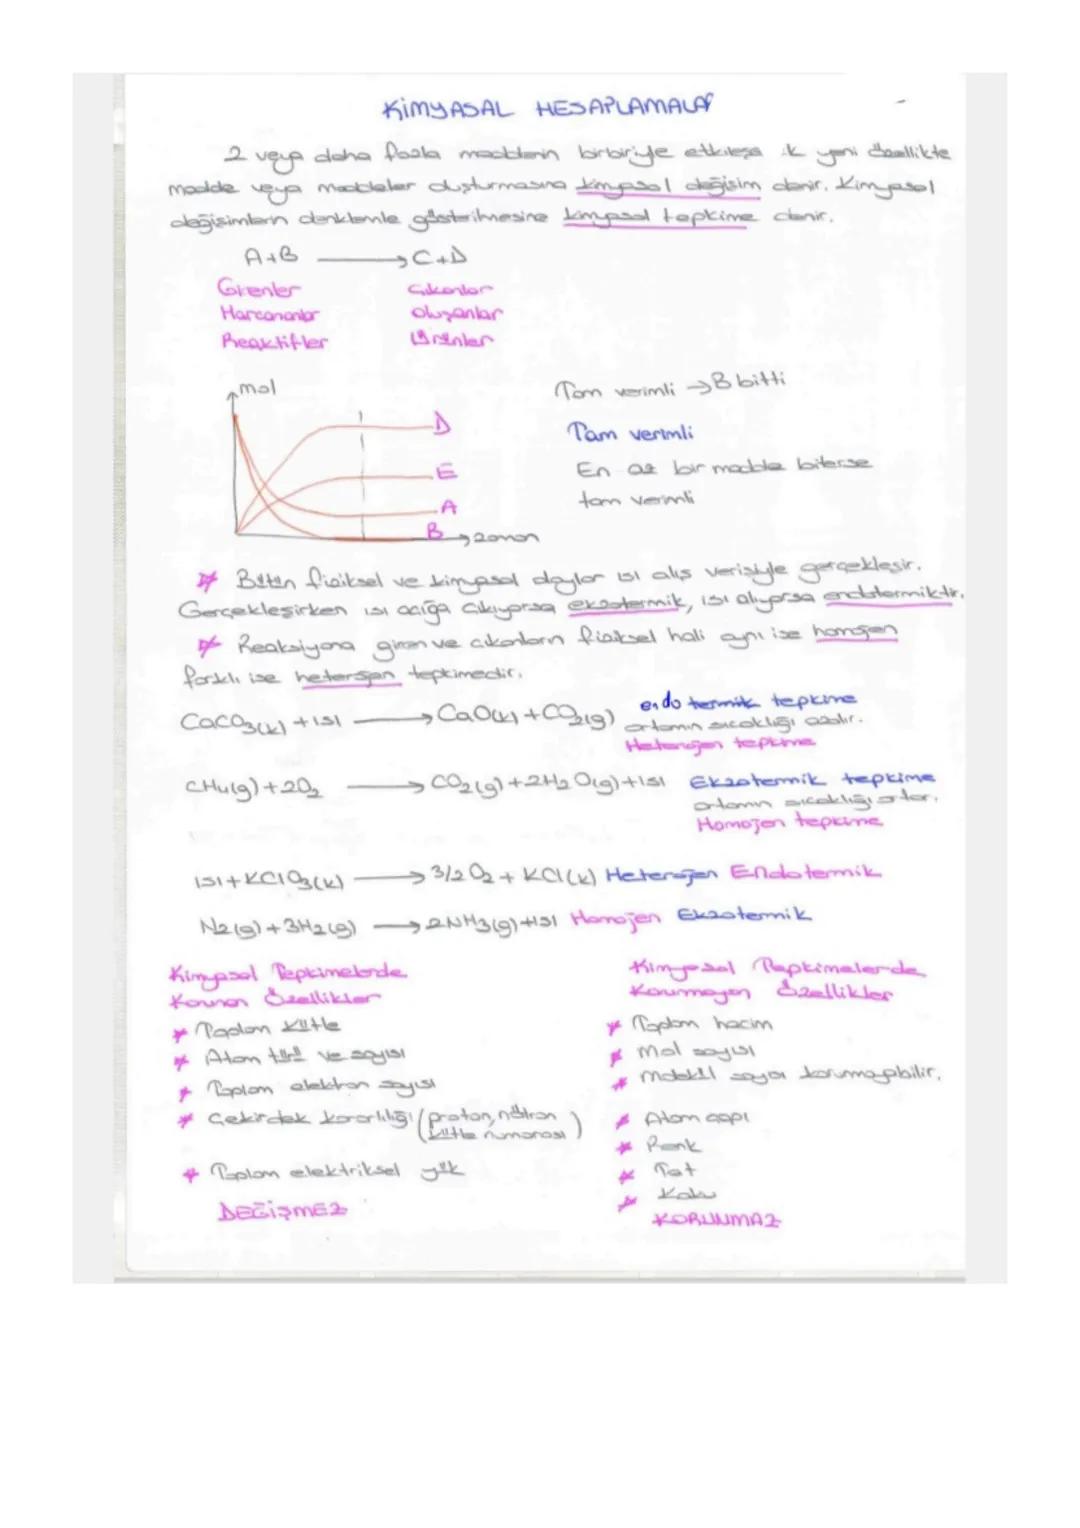 KİMYASAL HESAPLAMALAR
2 veya daha fazla maddenin birbiriyle etkileşe k yeni özellikte
madde veya maddeler oluşturmasına kimyasal değişim denir. Kimyasal
değişimlerin denklemle gösterilmesine kimyasal tepkime denir.
A+B → C+D
Girenler Çıkanlar
Harcananlar Oluşanlar
Reaktifler Ürünler
mol
Tam verimli → B bitti
D
Tam verimli
E
En az bir madde biterse
tam verimli
A
B
zaman
Bütün fiziksel ve kimyasal olaylar ısı alış verişiyle gerçekleşir.
Gerçekleşirken ısı açığa çıkıyorsa ekzotermik, ısı alıyorsa endotermiktir.
Reaksiyona giren ve çıkanların fiziksel hali aynı ise homojen
farklı ise heterojen tepkimedir.
CaCO3(k) + ısı → CaO(k) + CO2(g) endotermik tepkime
ortamın sıcaklığı azalır.
Heterojen tepkime
CH4(g) + 2O2 → CO2(g) + 2H2O(g) + ısı Ekzotermik tepkime
ortamın sıcaklığı artar.
Homojen tepkime
ısı + KClO3(k) → 3/2 O2 + KCl(k) Heterojen Endotermik
N2(g) + 3H2(g) → 2NH3(g) + ısı Homojen Ekzotermik
Kimyasal Tepkimelerde
Korunan Özellikler
* Toplam Kütle
* Atom türü ve sayısı
* Toplam elektron sayısı
* Çekirdek kararlılığı (proton, nötron
kütle numarası)
* Toplam elektriksel yük
DEĞİŞMEZ
Kimyasal Tepkimelerde
Korunmayan Özellikler
* Toplam hacim
* Mol sayısı
* Molekül sayısı korunmayabilir.
* Atom çapı
* Renk
* Tat
* Koku
KORUNMAZ